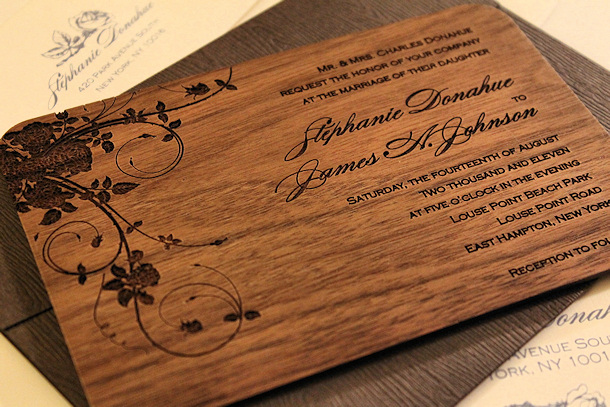 Stephanie Donahue
420 PARK AVENUE SOUTH
NEW YORK, NY
MR. & MRS. CHARLES DONAHUE
REQUEST THE HONOR OF YOUR COMPANY
AT THE MARRIAGE OF THEIR DAUGHTER
Stephanie Donahue
TO
James A. Johnson
SATURDAY, THE FOURTEENTH OF AUGUST
TWO THOUSAND AND ELEVEN
AT FIVE O'CLOCK IN THE EVENING
LOUSE POINT BEACH PARK
LOUSE POINT ROAD
EAST HAMPTON, NEW YORK
RECEPTION TO FO
AVENUE SOU
YORK, NY 1001